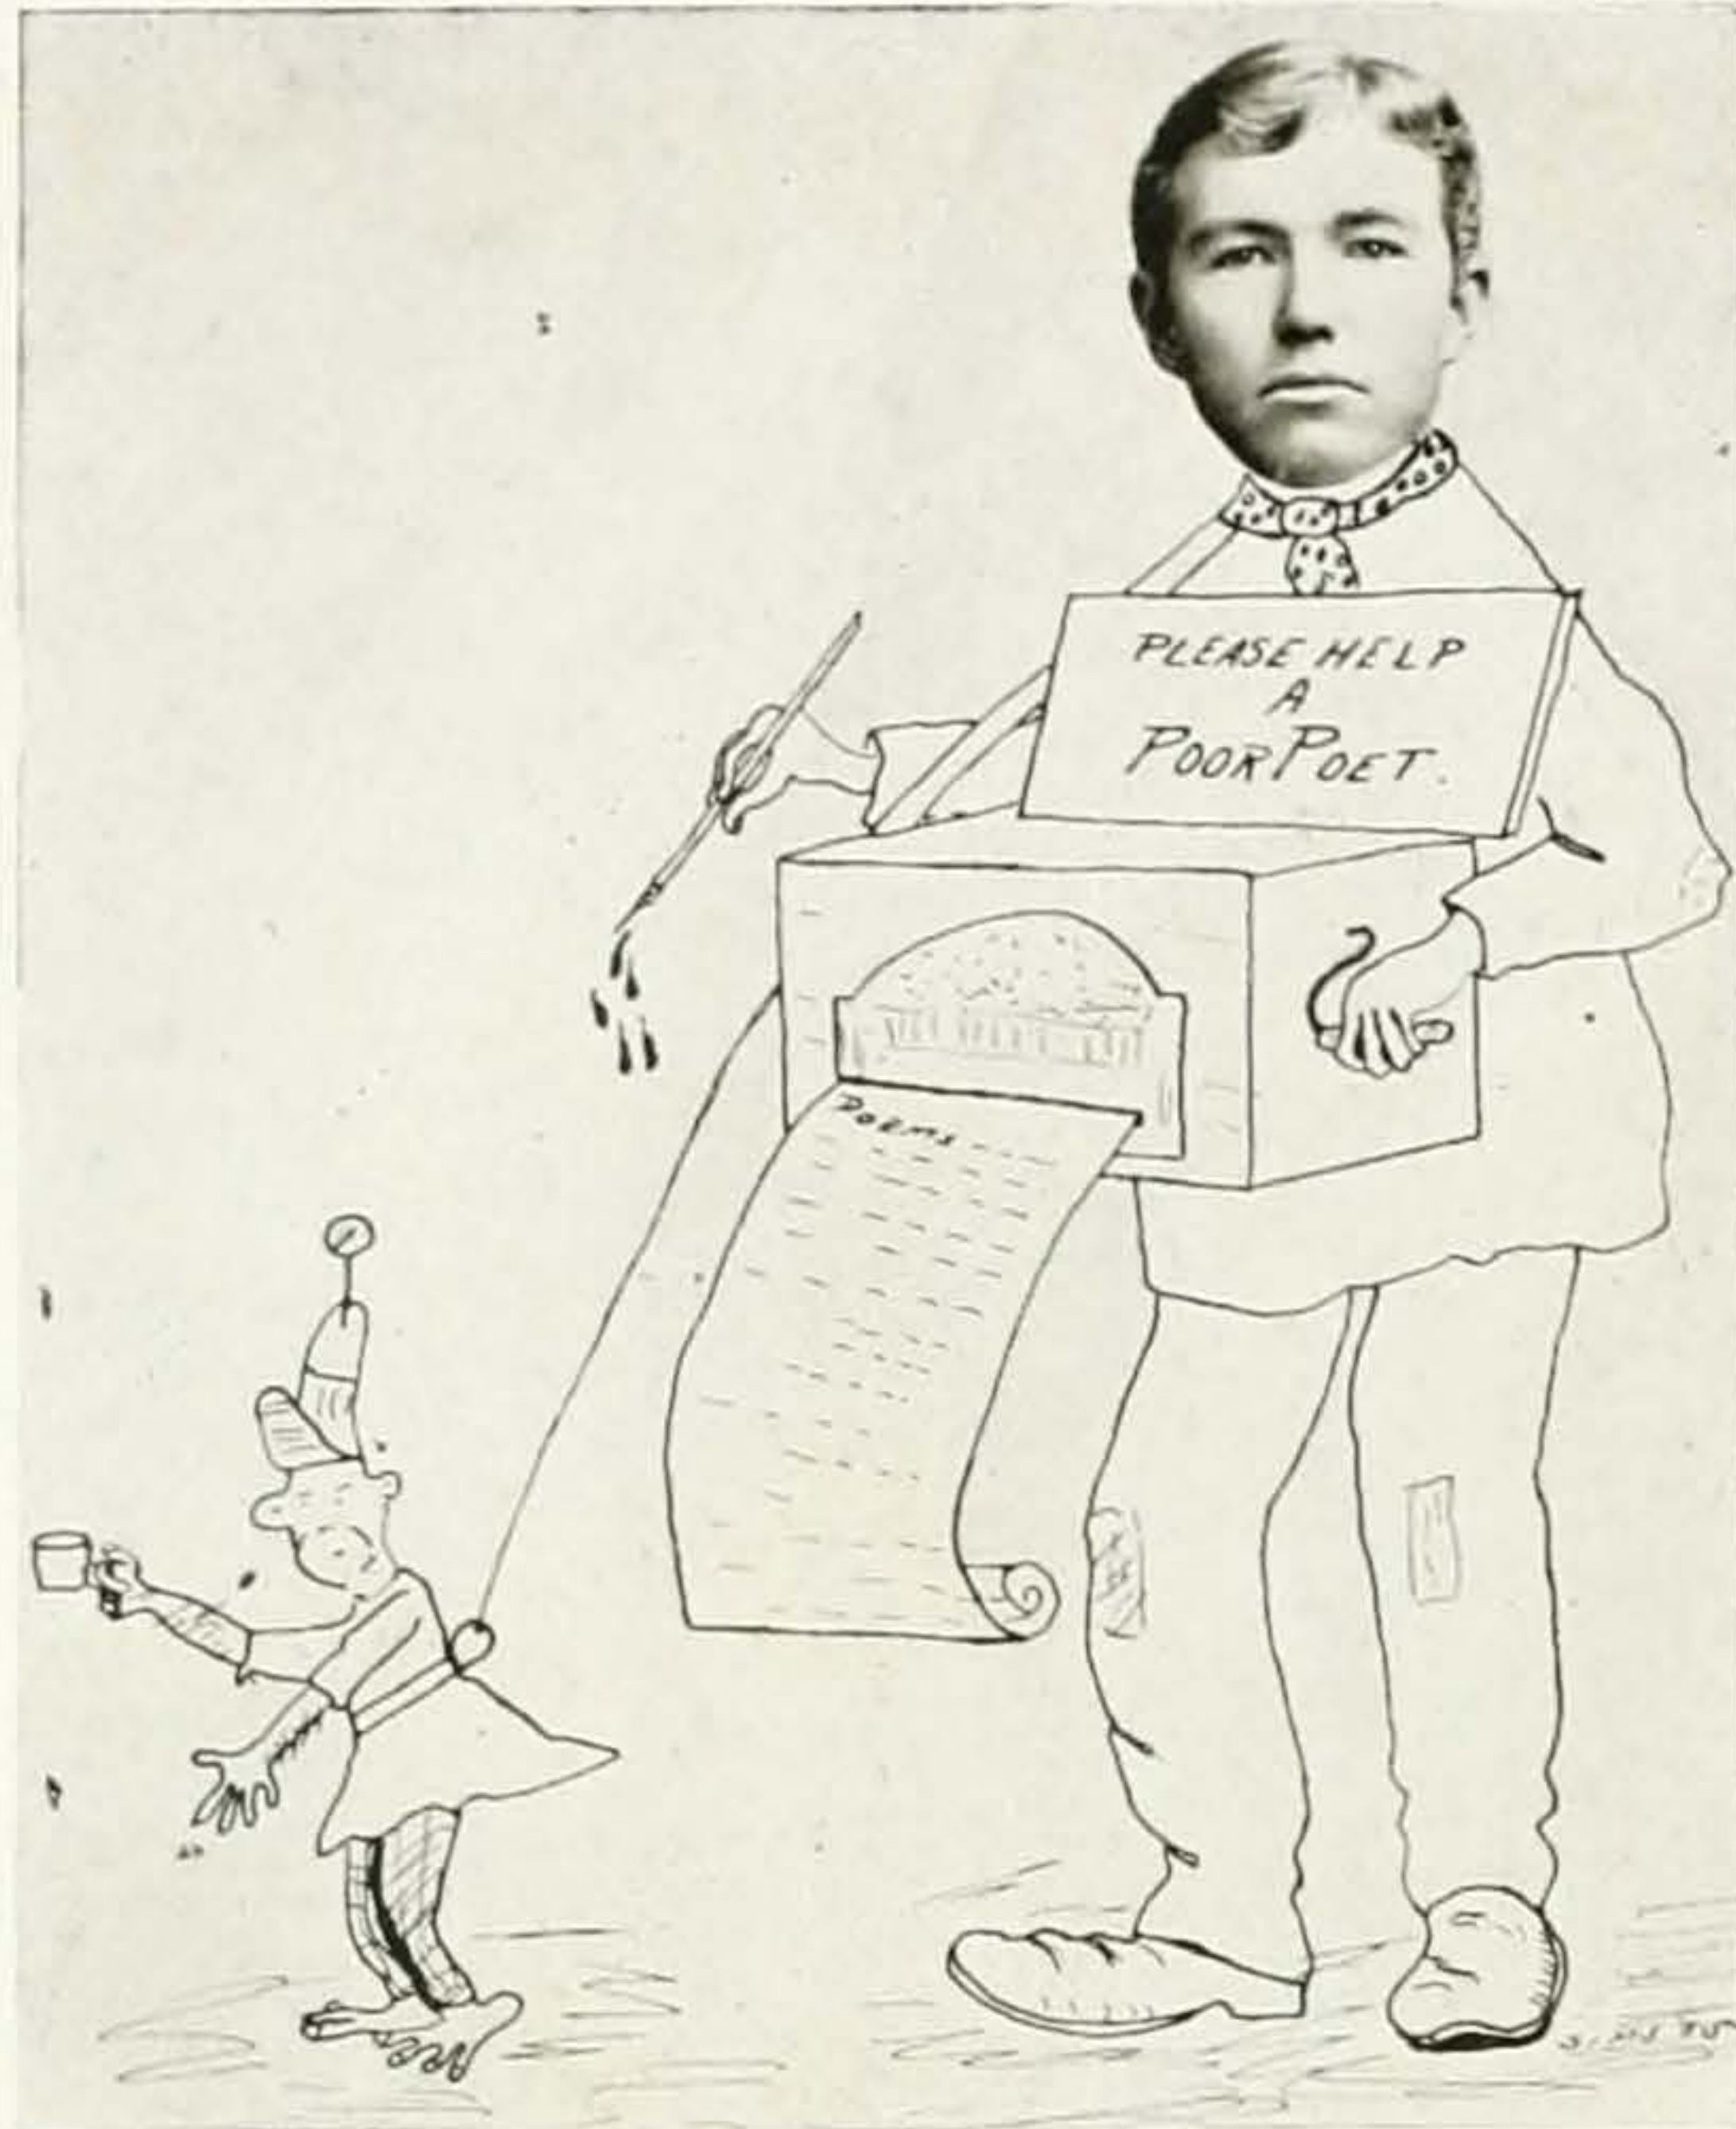 PLEASE HELP
A
POOR POET.
POEMS